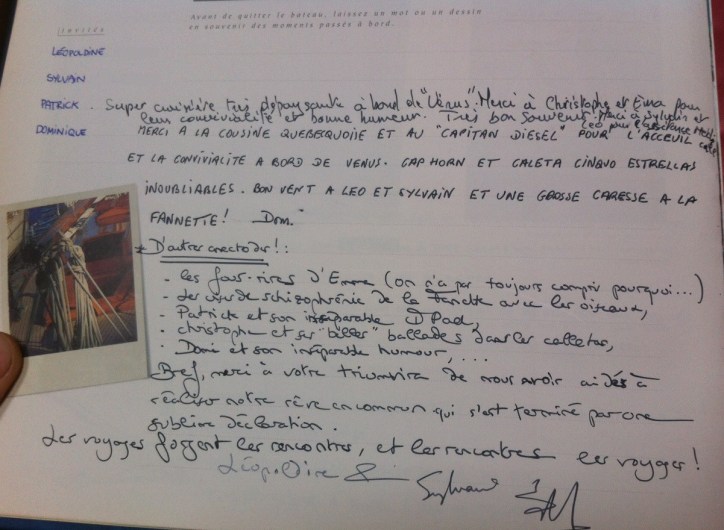 Avant de quitter le bateau, laissez un mot ou un dessin
en souvenir des moments passés à bord.
Invités
LÉOPOLDINE
SYLVAIN
PATRICK
DOMINIQUE
Super croisière très dépaysante à bord de "Vénus". Merci à Christophe et Emma pour
leur convivialité et bonne humeur. Très bon souvenir. Merci à Sylvain et
Léo pour l'assistance
MERCI A LA COUSINE QUEBECQUOIE ET AU "CAPITAN DIESEL" POUR L'ACCEUIL
ET LA CONVIVIALITE A BORD DE VENUS. CAP HORN ET CALETA CINQUO ESTRELLAS
INOUBLIABLES. BON VENT A LEO ET SYLVAIN ET UNE GROSSE CARESSE A LA
FANNETTE! Dom.
* D'autres anectodes! :
- les fous-rires d'Emma (on n'a pas toujours compris pourquoi...)
- Les crises de schizophrénie de la Fanette avec les oiseaux,
- Patrick et son inséparable IPad,
- Christophe et ses "belles" ballades dans les calletas,
- Domi et son inséparable humour, ....
Bref, merci à votre triumvira de nous avoir aidés à
réaliser notre rêve en commun qui s'est terminé par une
sublime déclaration.
Les voyages forgent les rencontres, et les rencontres les voyages!
Léopoldine & Sylvain